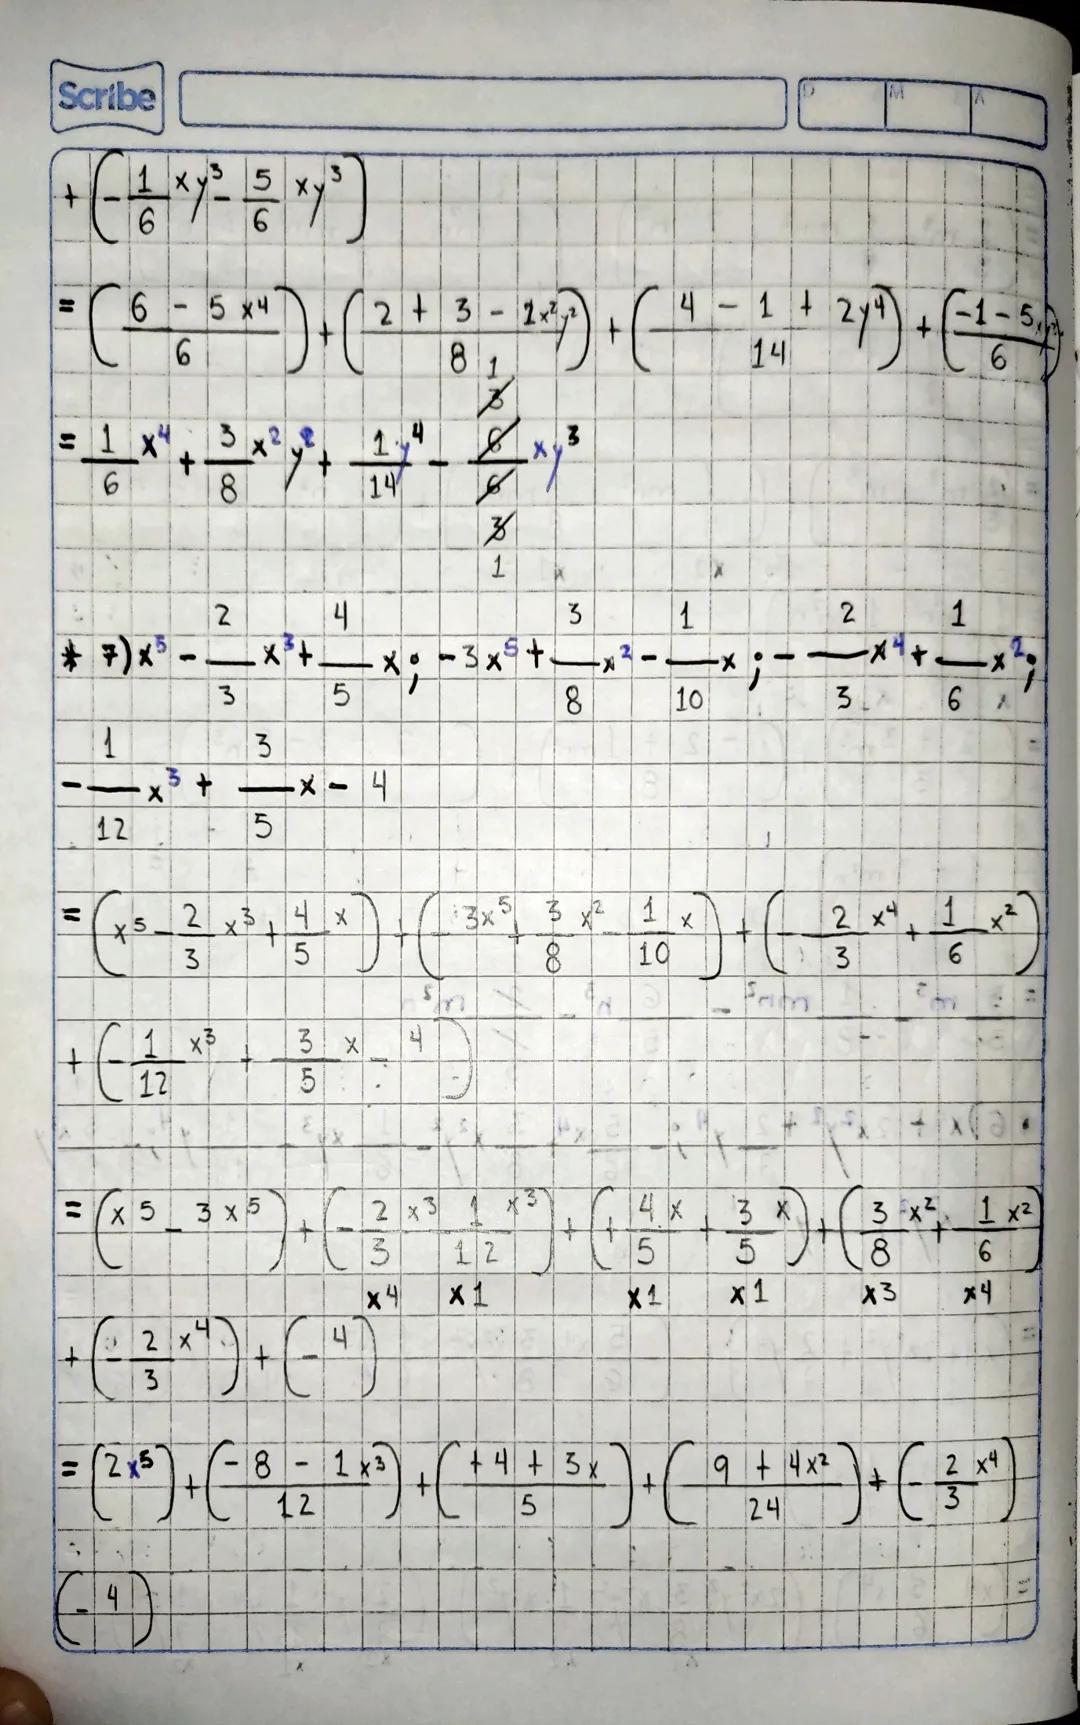 Scribe
D M A
+ (- 1/6 xy³ - 5/6 xy³)
= (6 - 5x⁴ / 6) + (2 + 3 - 2x²y² / 8) + (4 - 1 + 2y⁴ / 14) + (-1 - 5xy³ / 6)
= 1/6 x⁴ + 3/8 x² y² + 1/14 y⁴ - 6/6 xy³
1
3
3
1
* 7) x⁵ - 2/3 x³ + 4/5 x ; - 3x⁵ + 3/8 x² - 1/10 x ; - 2/3 x⁴ + 1/6 x² ;
- 1/12 x³ + 3/5 x - 4
= (x⁵ - 2/3 x³ + 4/5 x) + (- 3x⁵ + 3/8 x² - 1/10 x) + (- 2/3 x⁴ + 1/6 x²)
+ (- 1/12 x³ + 3/5 x - 4)
= (x⁵ - 3x⁵) + (- 2/3 x³ 1/12 x³) + (+ 4/5 x + 3/5 x) + (3/8 x² + 1/6 x²)
x4 x1 x1 x1 x3 x4
+ (- 2/3 x⁴) + (- 4)
= (2x⁵) + (- 8 - 1x³ / 12) + (+4 + 3x / 5) + (9 + 4x² / 24) + (- 2/3 x⁴)
(- 4)